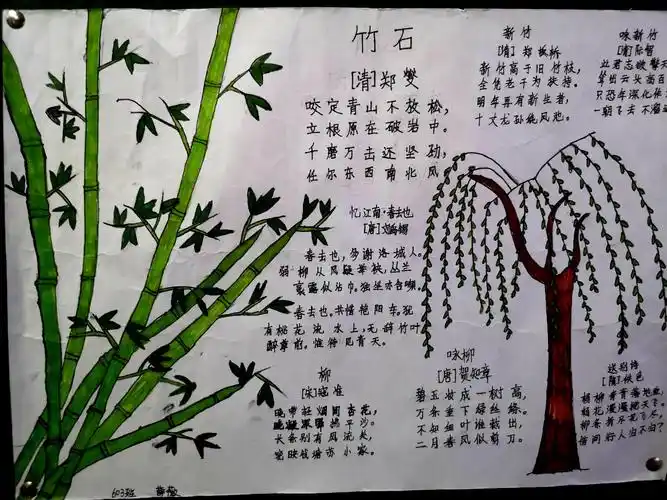 竹石
[清]郑燮
咬定青山不放松，
立根原在破岩中。
千磨万击还坚劲，
任尔东西南北风
新竹
[清]郑板桥
新竹高于旧竹枝，
全凭老干为扶持。
明年再有新生者，
十丈龙孙绕凤池。
咏新竹
忆江南·春去也
[唐]刘禹锡
春去也，多谢洛城人。
弱柳从风疑举袂，丛兰
裛露似沾巾。独坐亦含嚬。
春去也。共惜艳阳年。犹
有桃花流水上。无辞竹叶
醉尊前。惟待见青天。
柳
[宋]寇准
晓带轻烟间杏花，
晚凝深翠拂平沙。
长条别有风流处，
密映钱塘苏小家。
咏柳
[唐]贺知章
碧玉妆成一树高，
万条垂下绿丝绦。
不知细叶谁裁出，
二月春风似剪刀。
送别诗
[隋]佚名
杨柳青青著地垂，
杨花漫漫搅天飞。
柳条折尽花飞尽，
借问行人当不归？
603班